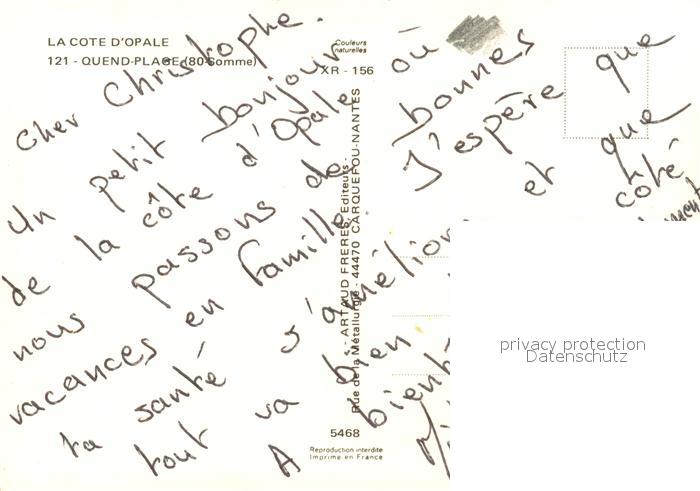 LA COTE D'OPALE
121 - QUEND-PLAGE (80-Somme)
Couleurs
naturelles
XR - 156
- ARTAUD FRERES, Editeurs -
Rue de la Métallurgie - 44470 CARQUEFOU-NANTES
5468
Reproduction interdite
Imprimé en France
Cher Christophe.
Un petit bonjour
de la côte d'Opale où
nous passons de bonnes
vacances en famille. J'espère que
ta santé s'amélior et que
tout va bien côté
A bient
privacy protection
Datenschutz